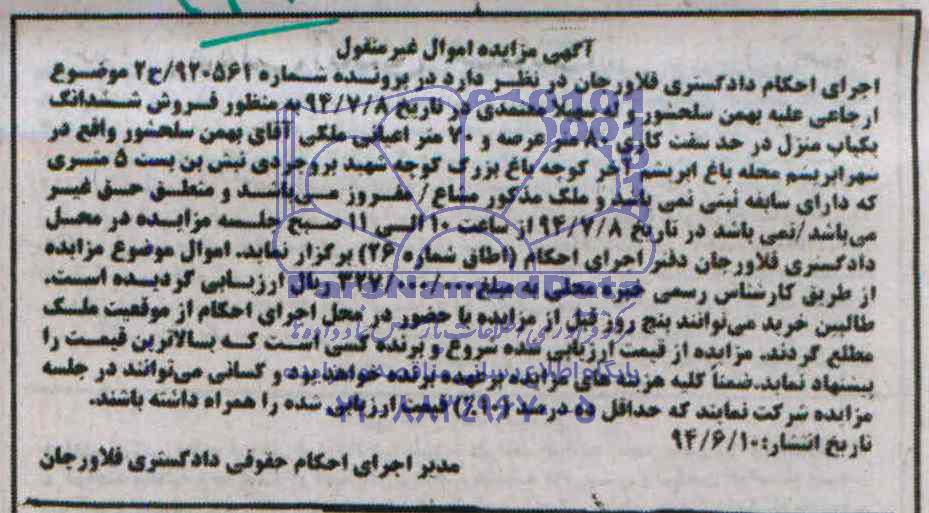 آگهی مزایده اموال غیر منقول
اجرای احکام دادگستری فلاورجان در نظر دارد در پرونده شماره ۹۲۰۵۶۱/ح۲ موضوع
ارجاعی علیه بهمن سلحشور و له سهیلا معتمدی در تاریخ ۹۴/۷/۸ به منظور فروش ششدانگ
یکباب منزل در حد سفت کاری ۸۰ متر عرصه و ۷۰ متر اعیانی ملکی آقای بهمن سلحشور واقع در
شهر ابریشم محله باغ ابریشم آخر کوچه باغ بزرگ کوچه شهید بروجردی نبش بن بست ۵ متری
که دارای سابقه ثبتی نمی باشد و ملک مذکور مشاع/ مفروز می‌باشد و متعلق حق غیر
می‌باشد /نمی باشد در تاریخ ۹۴/۷/۸ از ساعت ۱۰ الی ۱۱ صبح جلسه مزایده در محل
دادگستری فلاورجان دفتر اجرای احکام (اطاق شماره ۲۶) برگزار نماید. اموال موضوع مزایده
از طریق کارشناس رسمی خبره محلی به مبلغ ۳۲۷/۰۰۰/۰۰۰ ریال ارزیابی گردیده است.
طالبین خرید می‌توانند پنج روز قبل از مزایده با حضور در محل اجرای احکام از موقعیت ملک
مطلع گردند. مزایده از قیمت ارزیابی شده شروع و برنده کسی است که بالاترین قیمت را
پیشنهاد نماید. ضمناً کلیه هزینه های مزایده برعهده برنده خواهد بود و کسانی می‌توانند در جلسه
مزایده شرکت نمایند که حداقل ده درصد (۱۰٪) قیمت ارزیابی شده را همراه داشته باشند.
تاریخ انتشار: ۹۴/۶/۱۰
مدیر اجرای احکام حقوقی دادگستری فلاورجان
ParsNamadData